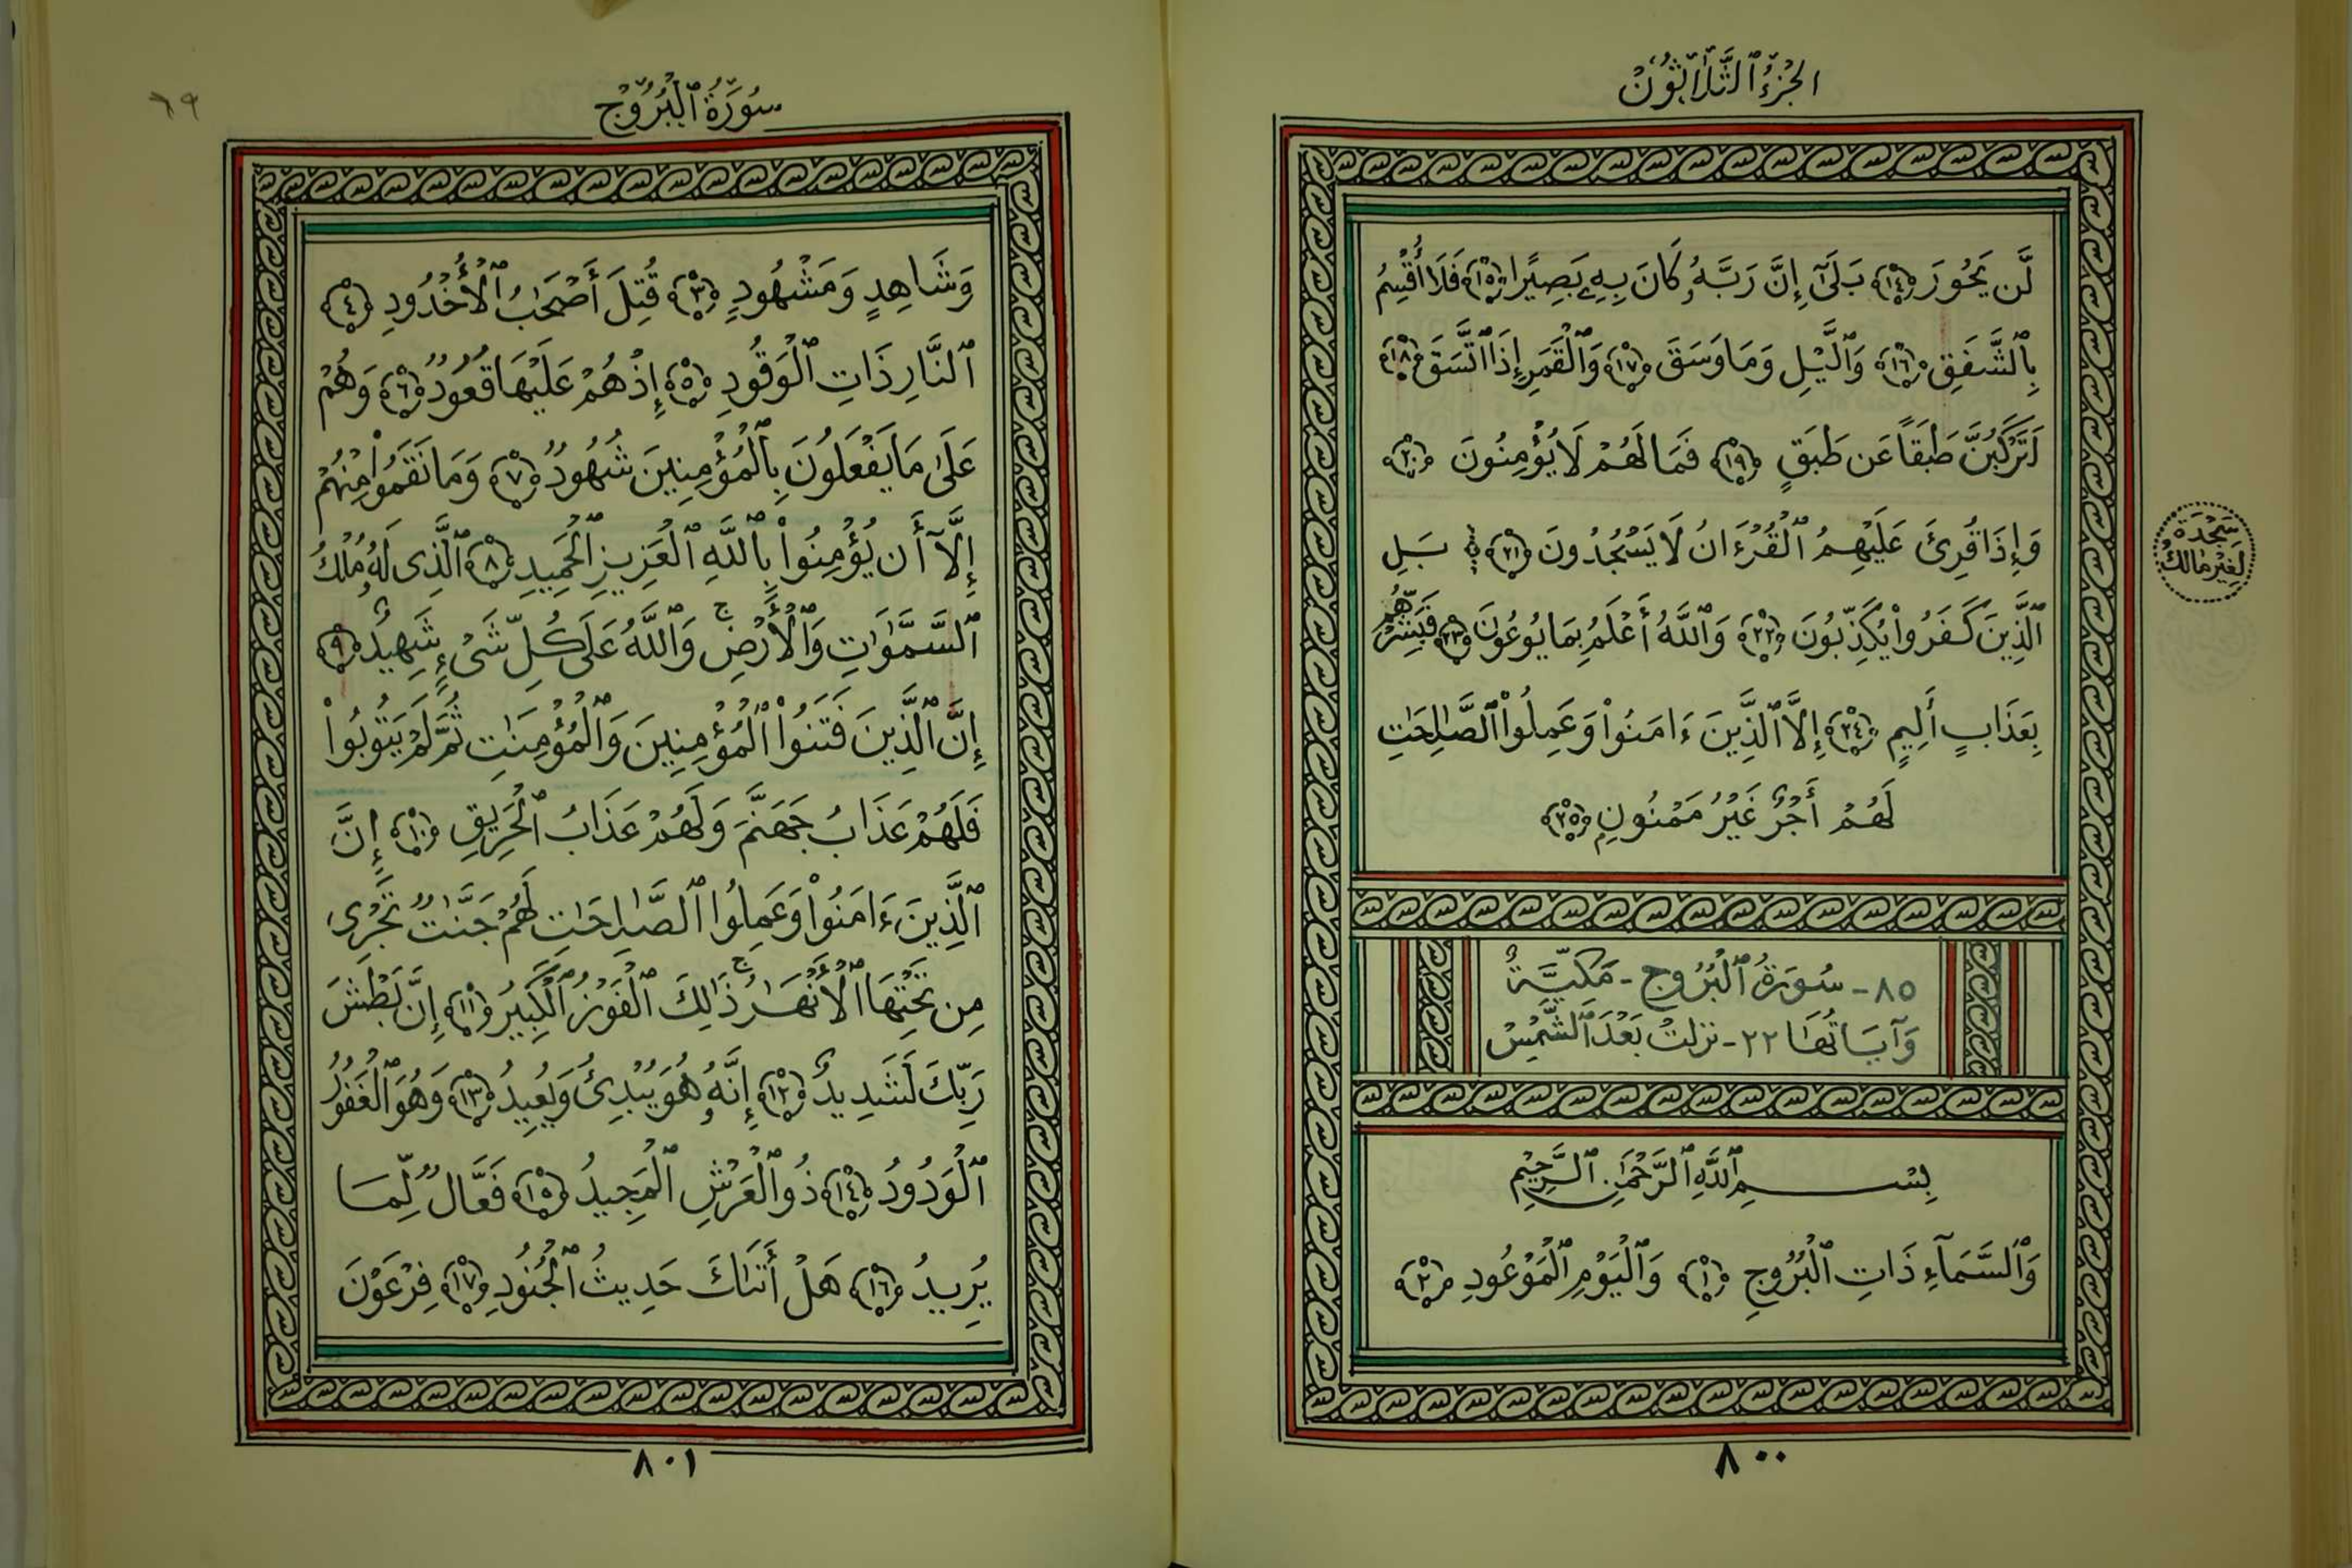 الجُزْءُ ٱلثَّلَاثُونْ
لَّن يَحُورَ ﴿١٤﴾ بَلَىٰٓ إِنَّ رَبَّهُۥ كَانَ بِهِۦ بَصِيرًا ﴿١٥﴾ فَلَآ أُقْسِمُ
بِٱلشَّفَقِ ﴿١٦﴾ وَٱلَّيْلِ وَمَا وَسَقَ ﴿١٧﴾ وَٱلْقَمَرِ إِذَا ٱتَّسَقَ ﴿١٨﴾
لَتَرْكَبُنَّ طَبَقًا عَن طَبَقٍ ﴿١٩﴾ فَمَا لَهُمْ لَا يُؤْمِنُونَ ﴿٢٠﴾
وَإِذَا قُرِئَ عَلَيْهِمُ ٱلْقُرْءَانُ لَا يَسْجُدُونَ ﴿٢١﴾ بَلِ
سَجْدَة
لِغَيْرِ مَالِكْ
ٱلَّذِينَ كَفَرُوا۟ يُكَذِّبُونَ ﴿٢٢﴾ وَٱللَّهُ أَعْلَمُ بِمَا يُوعُونَ ﴿٢٣﴾ فَبَشِّرْهُم
بِعَذَابٍ أَلِيمٍ ﴿٢٤﴾ إِلَّا ٱلَّذِينَ ءَامَنُوا۟ وَعَمِلُوا۟ ٱلصَّـٰلِحَـٰتِ
لَهُمْ أَجْرٌ غَيْرُ مَمْنُونٍ ﴿٢٥﴾
٨٥- سُورَةُ ٱلْبُرُوجِ - مَكِّيَّةٌ
وَآيَاتُهَا ٢٢ - نزلتْ بَعْدَ ٱلشَّمْسْ
بِسْمِ ٱللَّهِ ٱلرَّحْمَـٰنِ ٱلرَّحِيمِ
وَٱلسَّمَآءِ ذَاتِ ٱلْبُرُوجِ ﴿١﴾ وَٱلْيَوْمِ ٱلْمَوْعُودِ ﴿٢﴾
٨٠٠
سُورَةُ ٱلْبُرُوجْ
٦٩
وَشَاهِدٍ وَمَشْهُودٍ ﴿٣﴾ قُتِلَ أَصْحَـٰبُ ٱلْأُخْدُودِ ﴿٤﴾
ٱلنَّارِ ذَاتِ ٱلْوَقُودِ ﴿٥﴾ إِذْ هُمْ عَلَيْهَا قُعُودٌ ﴿٦﴾ وَهُمْ
عَلَىٰ مَا يَفْعَلُونَ بِٱلْمُؤْمِنِينَ شُهُودٌ ﴿٧﴾ وَمَا نَقَمُوا۟ مِنْهُمْ
إِلَّآ أَن يُؤْمِنُوا۟ بِٱللَّهِ ٱلْعَزِيزِ ٱلْحَمِيدِ ﴿٨﴾ ٱلَّذِى لَهُۥ مُلْكُ
ٱلسَّمَـٰوَٰتِ وَٱلْأَرْضِ ۚ وَٱللَّهُ عَلَىٰ كُلِّ شَىْءٍ شَهِيدٌ ﴿٩﴾
إِنَّ ٱلَّذِينَ فَتَنُوا۟ ٱلْمُؤْمِنِينَ وَٱلْمُؤْمِنَـٰتِ ثُمَّ لَمْ يَتُوبُوا۟
فَلَهُمْ عَذَابُ جَهَنَّمَ وَلَهُمْ عَذَابُ ٱلْحَرِيقِ ﴿١٠﴾ إِنَّ
ٱلَّذِينَ ءَامَنُوا۟ وَعَمِلُوا ٱلصَّـٰلِحَـٰتِ لَهُمْ جَنَّـٰتٌ تَجْرِى
مِن تَحْتِهَا ٱلْأَنْهَـٰرُ ۚ ذَٰلِكَ ٱلْفَوْزُ ٱلْكَبِيرُ ﴿١١﴾ إِنَّ بَطْشَ
رَبِّكَ لَشَدِيدٌ ﴿١٢﴾ إِنَّهُۥ هُوَ يُبْدِئُ وَيُعِيدُ ﴿١٣﴾ وَهُوَ ٱلْغَفُورُ
ٱلْوَدُودُ ﴿١٤﴾ ذُو ٱلْعَرْشِ ٱلْمَجِيدُ ﴿١٥﴾ فَعَّالٌ لِّمَا
يُرِيدُ ﴿١٦﴾ هَلْ أَتَىٰكَ حَدِيثُ ٱلْجُنُودِ ﴿١٧﴾ فِرْعَوْنَ
٨٠١